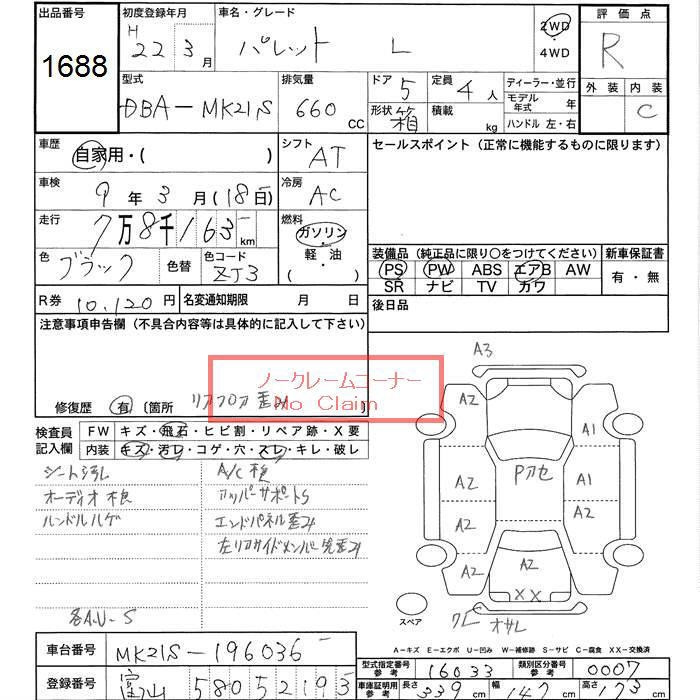 出品番号
1688
初度登録年月
H 22 3月
車名・グレード
パレット L
2WD
・
4WD
評価点
R
外装 内装
C
型式
DBA-MK21S
排気量
660 CC
ドア 5
形状 箱
定員 4人
積載 kg
ディーラー・並行
モデル年式 年
ハンドル 左・右
車歴
自家用・( )
シフト
AT
セールスポイント(正常に機能するものに限ります)
車検
9年3月(18日)
冷房
AC
走行
7万8千163km
燃料
ガソリン
・
軽・油
( )
色
ブラック
色替
色コード
ZJ3
装備品(純正品に限り〇をつけてください)
新車保証書
PS PW ABS エアB AW
SR ナビ TV カワ
有・無
R券 10,120円
名変通知期限 月 日
後日品
注意事項申告欄(不具合内容等は具体的に記入して下さい)
ノークレームコーナー
No Claim
修復歴 有 〔箇所 リアフロア歪み 〕
検査員
記入欄
FW キズ・飛石・ヒビ割・リペア跡・X要
内装 キズ・汚レ・コゲ・穴・スレ・キレ・破レ
シート汚レ
オーディオ欠
ハンドルハゲ
アッパーサポートS
エンドパネル歪み
左リアサイドメンバー先歪み
各A.U-S
A3
A2 A2
A2 Pアセ A1
A2 A2
A2 A2
XX
スペア
A-キズ E-エクボ U-凹み W-補修跡 S-サビ C-腐食 XX-交換済
車台番号
MK21S-196036
登録番号
富山 580 5 2195
型式指定番号
参考
16033
類別区分番号
参考
0007
車庫証明用
参考
長さ 339cm
幅 147cm
高さ 173cm